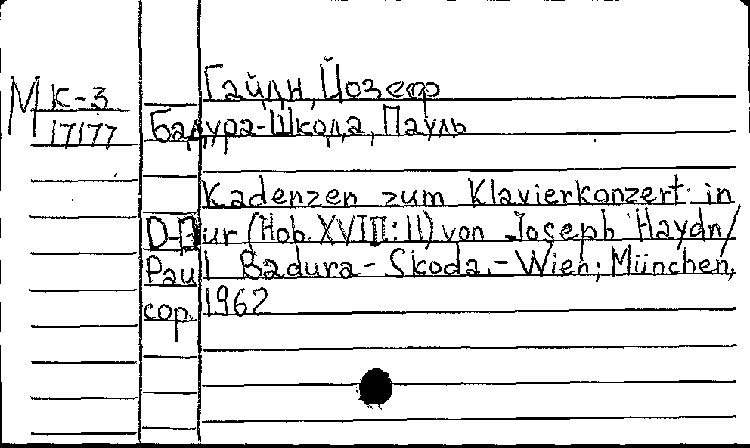 М К-3
17177
Гайдн, Йозеф
Бадура-Шкода, Пауль
Kadenzen zum Klavierkonzert in
D-Dur (Hob. XVIII:11) von Joseph Haydn/
Paul Badura-Skoda.-Wien; München,
cop. 1962